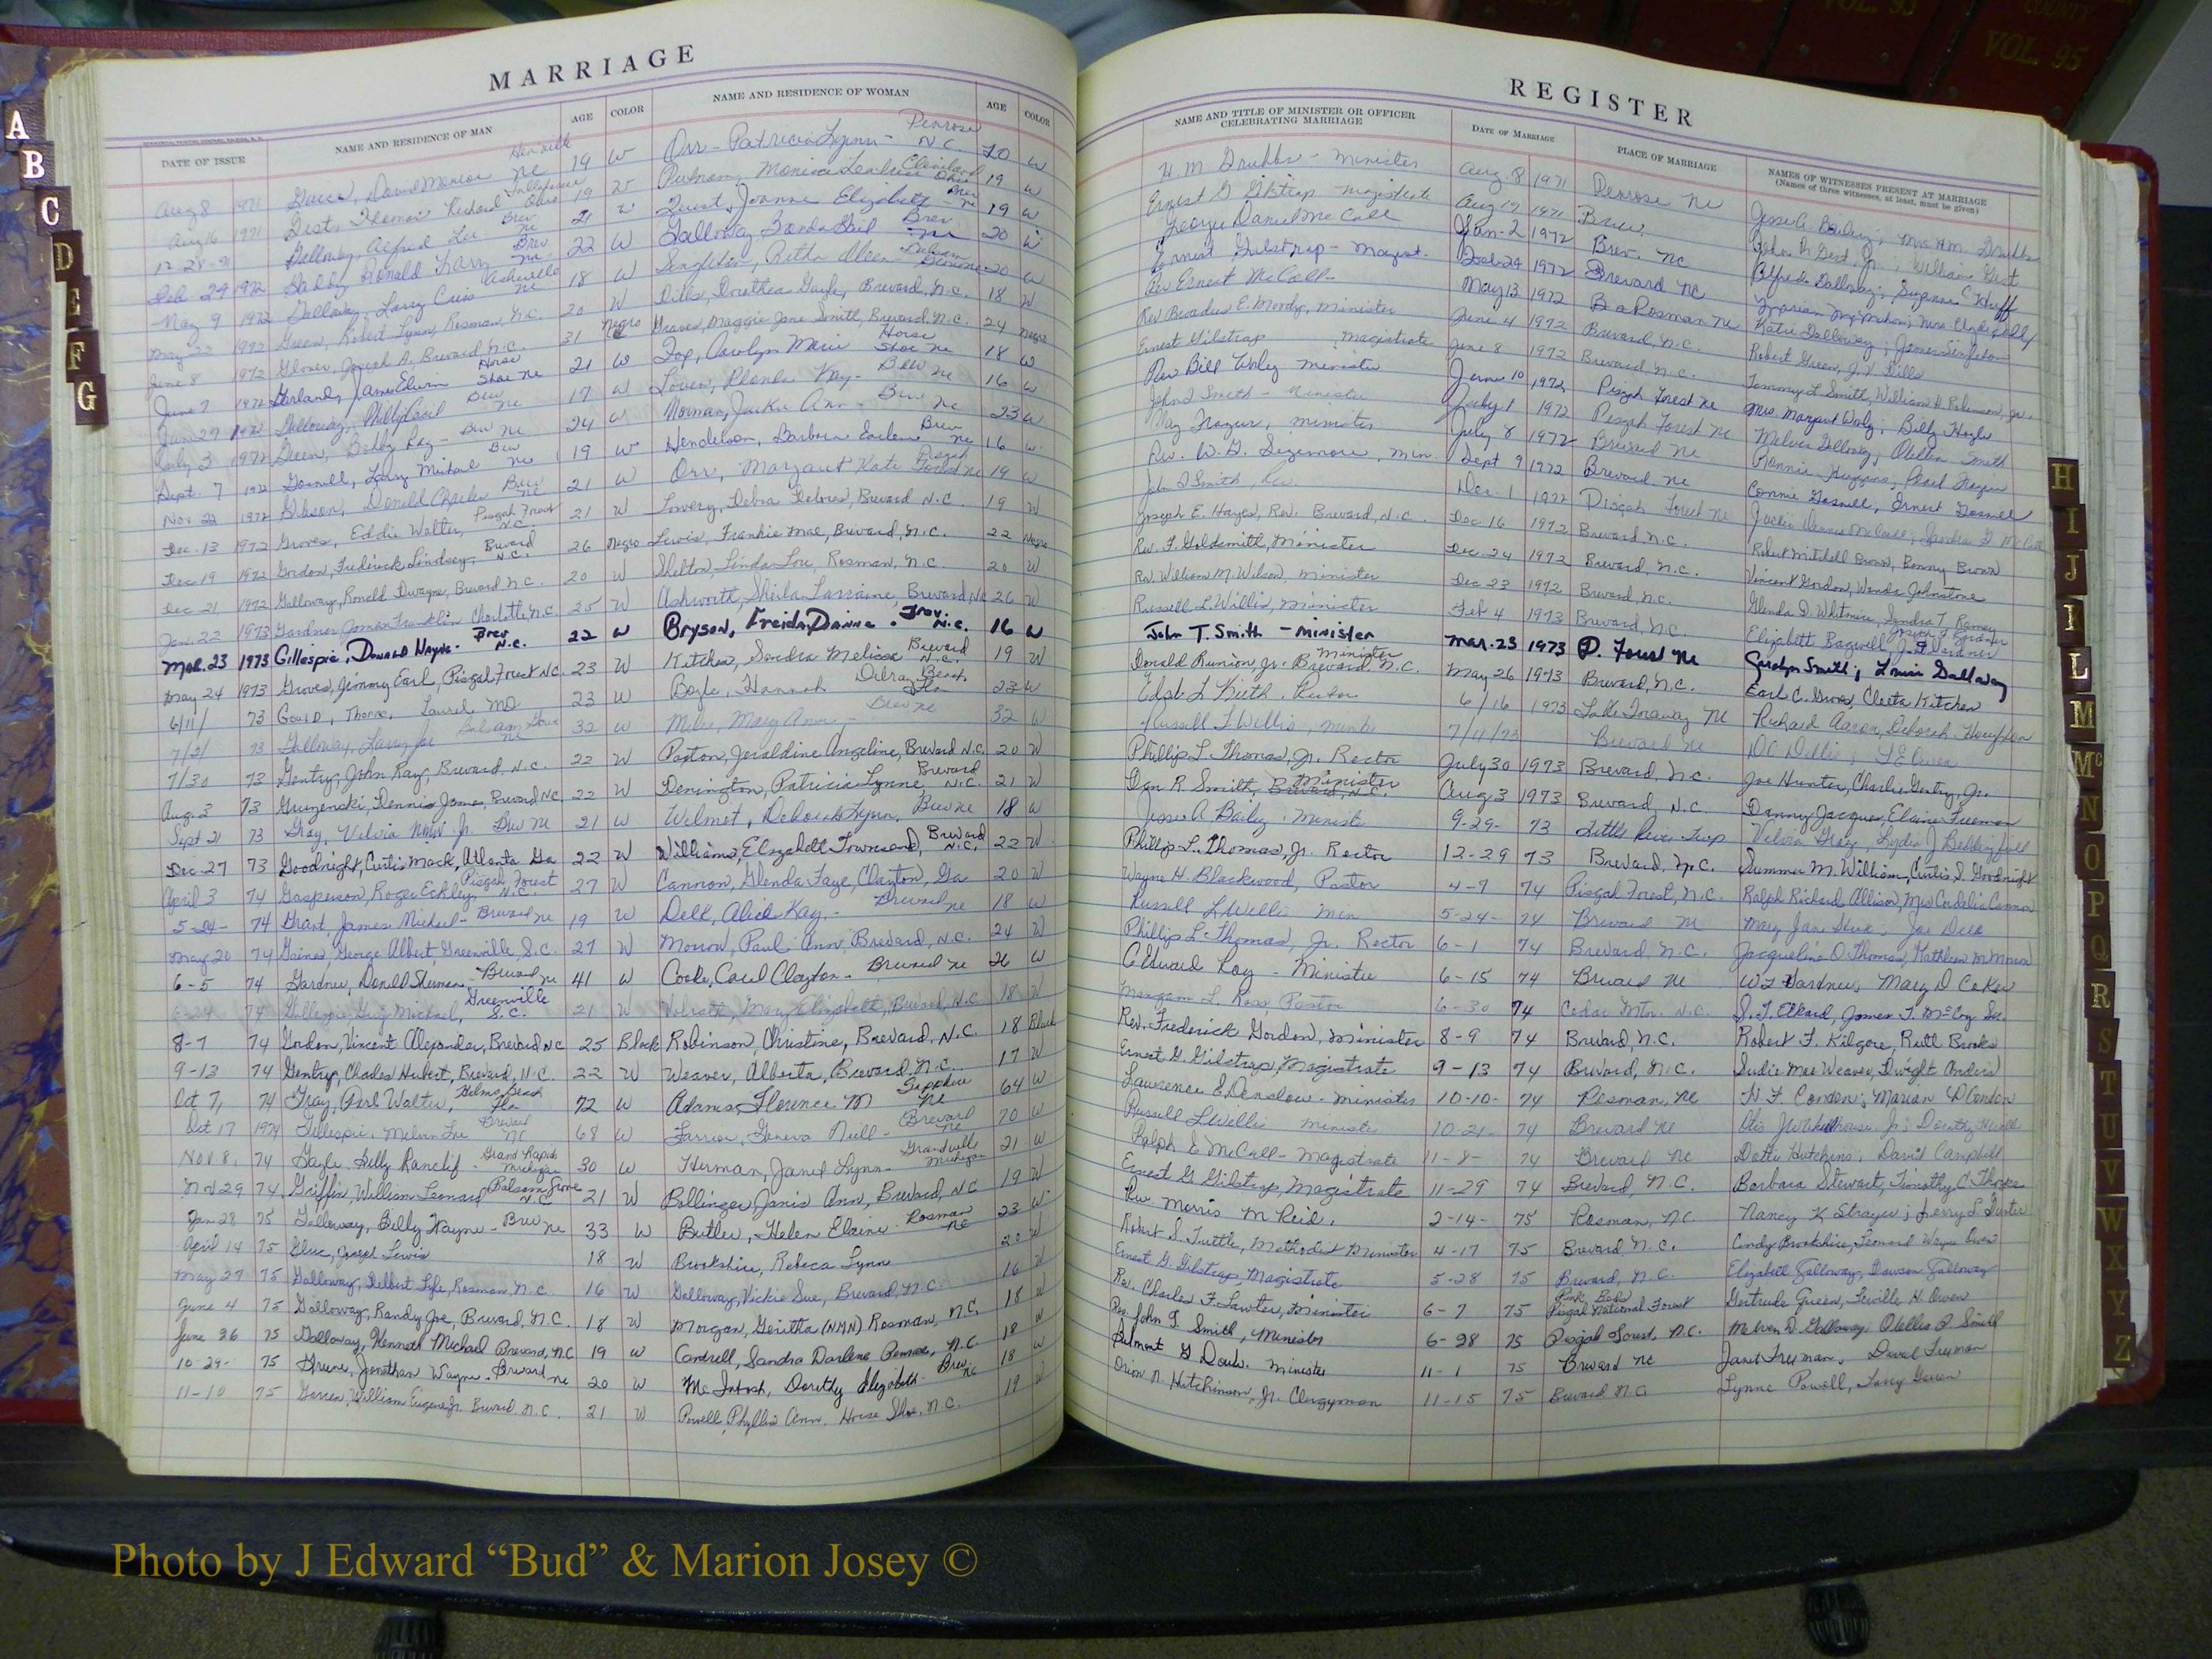 MARRIAGE
DATE OF ISSUE NAME AND RESIDENCE OF MAN AGE COLOR NAME AND RESIDENCE OF WOMAN AGE COLOR
Aug 8 1971 David Monroe NC 19 W Orr - Patricia Lynn - Penrose N.C. 20 W
Aug 16 1971 Gest, Thomas Richard Ohio 19 W Putnam, Monica Ohio 19 W
12-28-71 Galloway, Alfred Lee Brev NC 21 W Joanne Elizabeth - Brev NC 19 W
Feb 29 1972 Ronald Larry Brev NC 22 W Galloway, Gail Brev NC 20 W
May 9 1972 Galloway, Larry Asheville NC 18 W 20 W
May 22 1972 Green, Robert Lynn, Rosman, N.C. 20 W Dills, Dorothea Gayle, Brevard, N.C. 18 W
June 8 1972 Glover, Joseph A, Brevard, N.C. 31 Negro Graves, Maggie Jane Smith, Brevard, N.C. 24 Negro
June 7 1972 Garland, James Edwin Horse Shoe NC 21 W Fox, Carolyn Marie Horse Shoe NC 18 W
Jun 29 1972 Galloway, Phillip Cecil Brev NC 17 W Kay - Brev NC 16 W
July 3 1972 Green, Bobby Ray - Brev NC 24 W Norman, Jackie Ann - Brev NC 23 W
Sept. 7 1972 Gosnell, Larry Michael Brev NC 19 W Henderson, Barbara Earlene Brev NC 16 W
Nov 22 1972 Gibson, Donald Charles Brev NC 21 W Orr, Margaret Kate Pisgah Forest NC 19 W
Dec. 13 1972 Groves, Eddie Walter, Pisgah Forest N.C. 21 W Lowery, Debra Delores, Brevard N.C. 19 W
Dec 19 1972 Gordon, Frederick Lindsey, Brevard N.C. 26 Negro Lewis, Frankie Mae, Brevard, N.C. 22 Negro
Dec 21 1972 Galloway, Ronald Dwayne, Brevard N.C. 20 W Shelton, Linda Lou, Rosman, N.C. 20 W
Jan. 22 1973 Gardner, James Franklin Charlotte, N.C. 25 W Ashworth, Sheila Larraine, Brevard, N.C. 26 W
Mar. 23 1973 Gillespie, Donald Wayne - Brev N.C. 22 W Bryson, Freida Dianne - Trav. N.C. 16 W
May 24 1973 Groves, Jimmy Earl, Pisgah Forest N.C. 23 W Kitchen, Sandra Melissa Brevard N.C. 19 W
6/11/ 73 Gould, Thorne, Laurel MD 23 W Boyle, Hannah Delray Beach Fla 23 W
7/2/ 73 Galloway, Larry Joe Balsam Grove NC 32 W Miles, Mary Ann - Brev NC 32 W
7/30 73 Gentry, John Ray, Brevard, N.C. 22 W Paxton, Jeraldine Angeline, Brevard N.C. 20 W
Aug. 3 73 Gruzenski, Dennis James, Brevard N.C. 22 W Denington, Patricia Lynne, Brevard N.C. 21 W
Sept 21 73 Gray, Velvia Jr. Brev NC 21 W Wilmot, Deborah Lynn, Brev NC 18 W
Dec. 27 73 Goodnight, Curtis Mack, Atlanta Ga 22 W Williams, Elizabeth Townsend, Brevard N.C. 22 W
April 3 74 Gasperson, Roger Eckley, Pisgah Forest N.C. 27 W Cannon, Glenda Faye, Clayton, Ga 20 W
5-24- 74 Grant, James Michael - Brevard NC 19 W Delk, Alice Kay - Brevard NC 18 W
May 20 74 Gaines, George Albert, Greenville, S.C. 27 W Morrow, Paul Ann Brevard, N.C. 24 W
6-5 74 Gardner, Donald Sherman - Brevard NC 41 W Cooke, Carol Clayton - Brevard NC 26 W
6-24 74 Gillespie, Guy Michael, Greenville S.C. 21 W Mary Elizabeth, Brevard, N.C. 18 W
8-7 74 Gordon, Vincent Alexander, Brevard NC 25 Black Robinson, Christine, Brevard, N.C. 18 Black
9-13 74 Gentry, Charles Hubert, Brevard, N.C. 22 W Weaver, Alberta, Brevard, N.C. 17 W
Oct 7, 74 Gray, Paul Walter, Beach Fla 72 W Adams, Florence M Sapphire NC 64 W
Oct 17 1974 Gillespie, Melvin Lee Brevard NC 68 W Farrior, Geneva Neill - Brevard NC 70 W
Nov. 8, 74 Gayle Billy Ranclif - Grand Rapids Michigan 30 W Herman, Janet Lynn - Grandville Michigan 21 W
Nov 29 74 Griffin, William Leonard, Balsam Grove N.C. 21 W Bollinger, Janis Ann, Brevard, N.C. 19 W
Jan 28 75 Galloway, Billy Wayne - Brev NC 33 W Butler, Helen Elaine - Rosman NC 23 W
April 14 75 Glur, Joseph Lewis 18 W Brookshire, Rebeca Lynn 20 W
May 27 75 Galloway, Delbert Lyle, Rosman, N.C. 16 W Galloway, Vickie Sue, Brevard, N.C. 16 W
June 4 75 Galloway, Randy Joe, Brevard, N.C. 18 W Morgan, Geritha (NMN) Rosman, N.C. 18 W
June 26 75 Galloway, Kenneth Michael Brevard, N.C. 19 W Cantrell, Sandra Darlene Penrose, N.C. 18 W
10-29- 75 Greene, Jonathan Wayne - Brevard NC 20 W McIntosh, Dorothy Elizabeth - Brev NC 18 W
11-10 75 Garren, William Eugene Jr. Brevard N.C. 21 W Powell, Phyllis Ann, Horse Shoe, N.C. 19 W
REGISTER
NAME AND TITLE OF MINISTER OR OFFICER CELEBRATING MARRIAGE DATE OF MARRIAGE PLACE OF MARRIAGE NAMES OF WITNESSES PRESENT AT MARRIAGE
(Names of three witnesses, at least, must be given)
H. M. Grubbs - Minister Aug. 8 1971 Penrose NC Jesse A Bailey; Mrs H.M. Grubbs
Ernest G Gilstrap - magistrate Aug 17 1971 Brev. John R Gest, Jr.; William Gest
George Daniel McCall Jan-2 1972 Brev. NC Alfred Galloway; Suzanne C Huff
Ernest Gilstrap - Magist. Feb 29 1972 Brevard NC
Rev Ernest McCall May 13 1972 Rosman NC Katie Galloway; James Singleton
Rev Broadus E. Moody, Minister June 4 1972 Brevard, N.C. Robert Green, J.V. Dills
Ernest Gilstrap magistrate June 8 1972 Brevard, N.C. Tommy L Smith, William H Robinson, Jr.
Rev Bill Waly minister June 10 1972 Pisgah Forest NC Mrs. Margaret Waly; Billy Hoyle
John T Smith - minister July 1 1972 Pisgah Forest NC Melvin Galloway; Smith
Frazier, minister July 8 1972 Brevard NC Ronnie Huggins, Pearl Frazier
Rev. W. G. Sizemore, Min. Sept 9 1972 Brevard NC Connie Gosnell, Ernest Gosnell
John T Smith, Rev. Dec. 1 1972 Pisgah Forest NC Jackie McCall; Sandra G McCall
Joseph E. Hayes, Rev. Brevard, N.C. Dec 16 1972 Brevard N.C. Robert Mitchell Brown, Bonny Brown
Rev. F. Goldsmith, Minister Dec. 24 1972 Brevard, N.C. Vincent Gordon, Wanda Johnstone
Rev. William M. Wilson, minister Dec 23 1972 Brevard, N.C. Glenda D. Whitmire, Sandra T. Ramey
Russell L Willis, Minister Feb 4 1973 Brevard, N.C. Elizabeth Bagwell, J.D. Gardner
John T. Smith - minister Mar. 23 1973 P. Forest NC Carolyn Smith; Galloway
Donald Runion, Jr. - Minister Brevard, N.C. May 26 1973 Brevard, N.C. Earl C. Groves, Cleeta Kitchen
L Keith, Rector 6/16 1973 Lake Toxaway NC Richard Aaron, Deborah Houghton
Russell L Willis, minister 7/4/73 Brevard NC
Phillip L. Thomas, Jr. Rector July 30 1973 Brevard, N.C. Joe Hunter, Charlie Gentry, Jr.
Dan R. Smith, Minister Brevard, N.C. Aug 3 1973 Brevard, N.C. Danny Jacques, Elaine Freeman
Jesse A Bailey - minister 9-29- 73 Little River Twp Velvia Gray, Lydia J Beddingfield
Phillip L. Thomas, Jr. Rector 12-29 73 Brevard, N.C. Summer M. William, Curtis D. Goodnight
Wayne H. Blackwood, Pastor 4-7 74 Pisgah Forest, N.C. Ralph Richard Allison, Mrs Cordelia Cannon
Russell L Willis Min 5-24- 74 Brevard NC Mary Jane; Joe Delk
Phillip L. Thomas, Jr. Rector 6-1 74 Brevard, N.C. Jacqueline O. Thomas, Kathleen M Morrow
C Edward Roy - Minister 6-15 74 Brevard NC W L Gardner, Mary D Coker
Morgan L Ross, Pastor 6-30 74 Cedar Mtn. N.C. S. T. Elkard, James T. McCoy
Rev. Frederick Gordon, Minister 8-9 74 Brevard, N.C. Robert F. Kilgore, Ruth Brooks
Ernest G. Gilstrap, Magistrate 9-13 74 Brevard, N.C. Sudie Mae Weaver, Dwight Anders
Lawrence E. Denslow - minister 10-10- 74 Rosman, NC N. F. Condon; Marian D Condon
Russell L Willis minister 10-21- 74 Brevard NC
Ralph E McCall - Magistrate 11-8- 74 Brevard NC Hutchins; David Campbell
Ernest G Gilstrap, Magistrate 11-29 74 Brevard, N.C. Barbara Stewart, Timothy C.
Rev Morris M Reid. 2-14- 75 Rosman, NC Nancy K Strayer;
Robert S. Tuttle, Methodist Minister 4-17 75 Brevard N.C. Candy Brookshire, Leonard Wayne Owen
Ernest G. Gilstrap, Magistrate 5-28 75 Brevard, N.C. Elizabeth Galloway, Dawson Galloway
Rev. Charles F. Lawter, Minister 6-7 75 Pink Beds Pisgah National Forest Gertrude Green, Leville H. Owen
Rev. John T. Smith, Minister 6-28 75 Pisgah Forest, N.C. Melvin D. Galloway, Smith
Belmont G Doub. minister 11-1 75 Brevard NC Janet Freeman, David Freeman
Orion N. Hutchinson, Jr. Clergyman 11-15 75 Brevard N.C. Lynne Powell, Larry Garren
A
B
C
D
E
F
G
H
I
J
L
M
Mc
N
O
P
Q
R
S
T
U
V
W
X
Y
Z
VOL. 95
Photo by J Edward “Bud” & Marion Josey ©